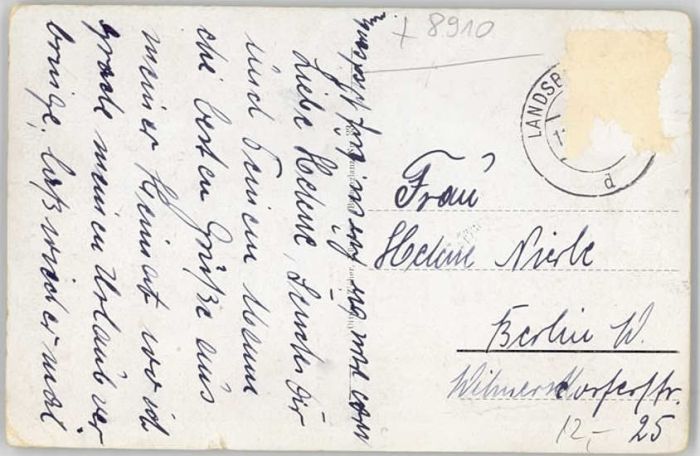 + 8910
LANDSB
d
Liebe Helene, Sende dir
und Deinem Manne
die besten Grüße aus
meiner Heimat wo ich
grade meinen Urlaub ver
bringe, laß wieder mal
Frau
Helene
Berlin W.
Wilmersdorferstr.
12,- 25